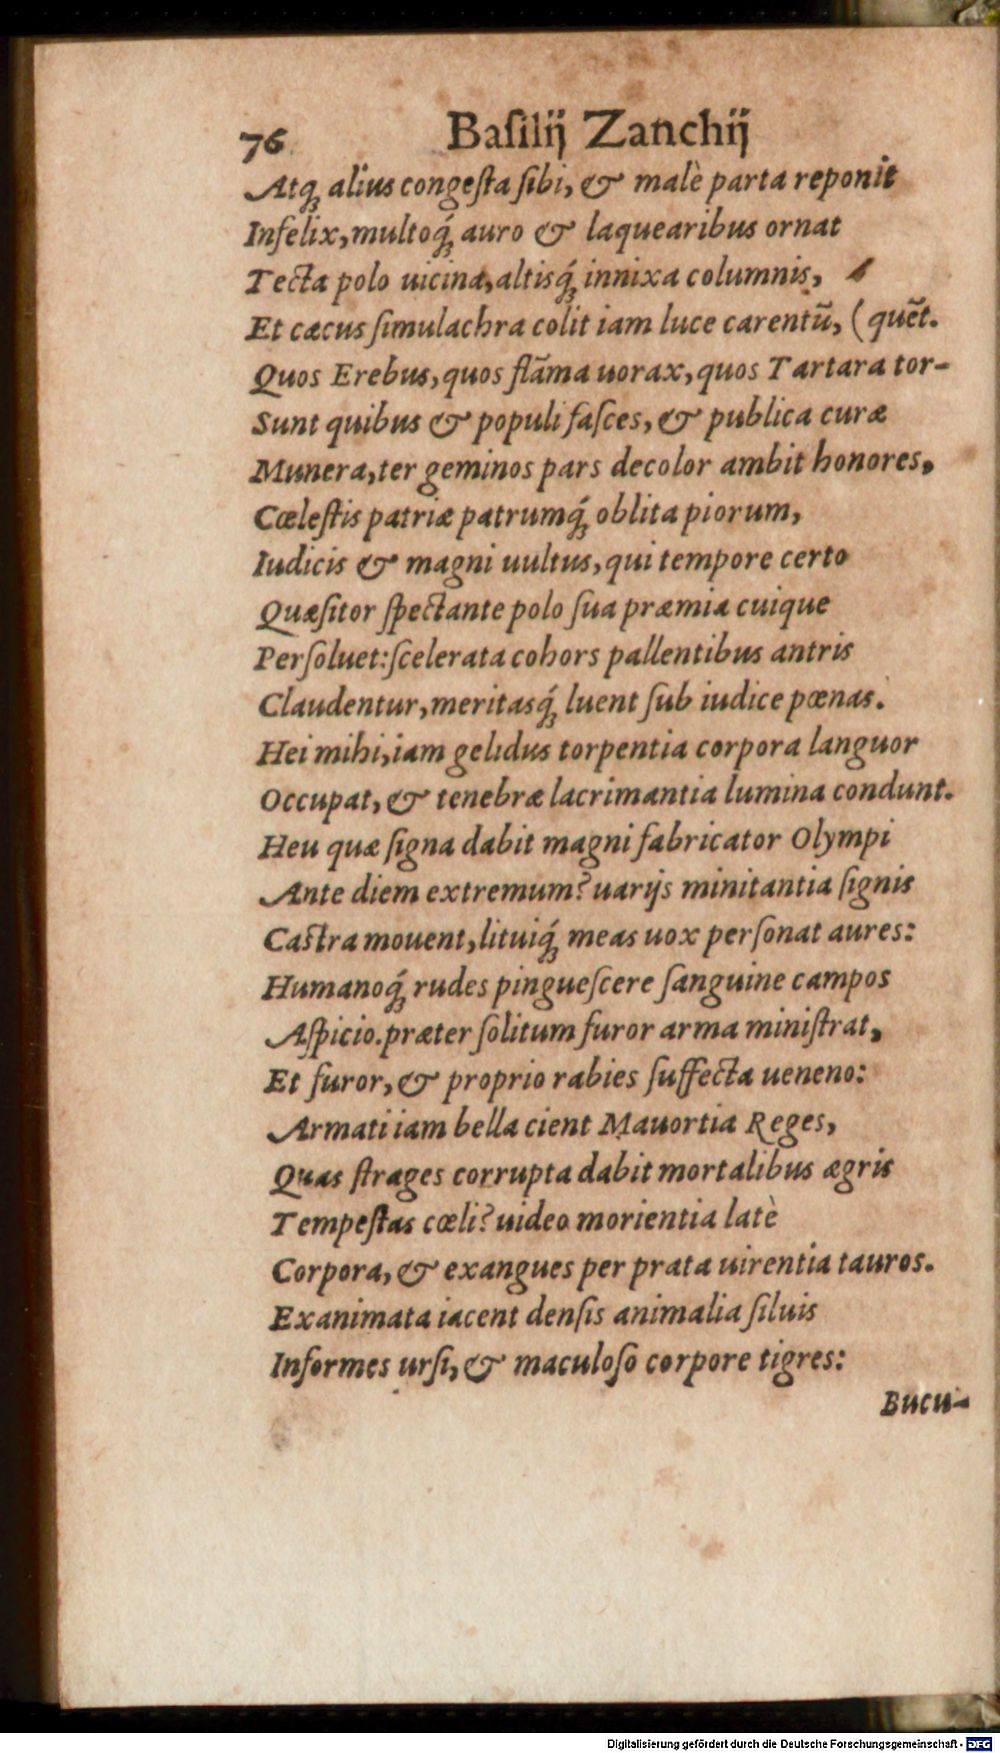 76 Baſilij Zanchij
Atq́; alius congeſta ſibi, & malè parta reponit
Infelix, multoq́; auro & laquearibus ornat
Tecta polo uicina, altisq́; innixa columnis,
Et cæcus ſimulachra colit iam luce carentū, (quēt.
Quos Erebus, quos flāma uorax, quos Tartara tor-
Sunt quibus & populi faſces, & publica curæ
Munera, ter geminos pars decolor ambit honores,
Cœleſtis patriæ patrumq́; oblita piorum,
Iudicis & magni uultus, qui tempore certo
Quæſitor ſpectante polo ſua præmia cuique
Perſoluet: ſcelerata cohors pallentibus antris
Claudentur, meritasq́; luent ſub iudice pœnas.
Hei mihi, iam gelidus torpentia corpora languor
Occupat, & tenebræ lacrimantia lumina condunt.
Heu quæ ſigna dabit magni fabricator Olympi
Ante diem extremum? uarijs minitantia ſignis
Caſtra mouent, lituiq́; meas uox perſonat aures:
Humanoq́; rudes pingueſcere ſanguine campos
Aſpicio. præter ſolitum furor arma miniſtrat,
Et furor, & proprio rabies ſuffecta ueneno:
Armati iam bella cient Mauortia Reges,
Quas ſtrages corrupta dabit mortalibus ægris
Tempeſtas cœli? uideo morientia latè
Corpora, & exangues per prata uirentia tauros.
Exanimata iacent denſis animalia ſiluis
Informes urſi, & maculoſo corpore tigres:
Bucu-
Digitalisierung gefördert durch die Deutsche Forschungsgemeinschaft - DFG